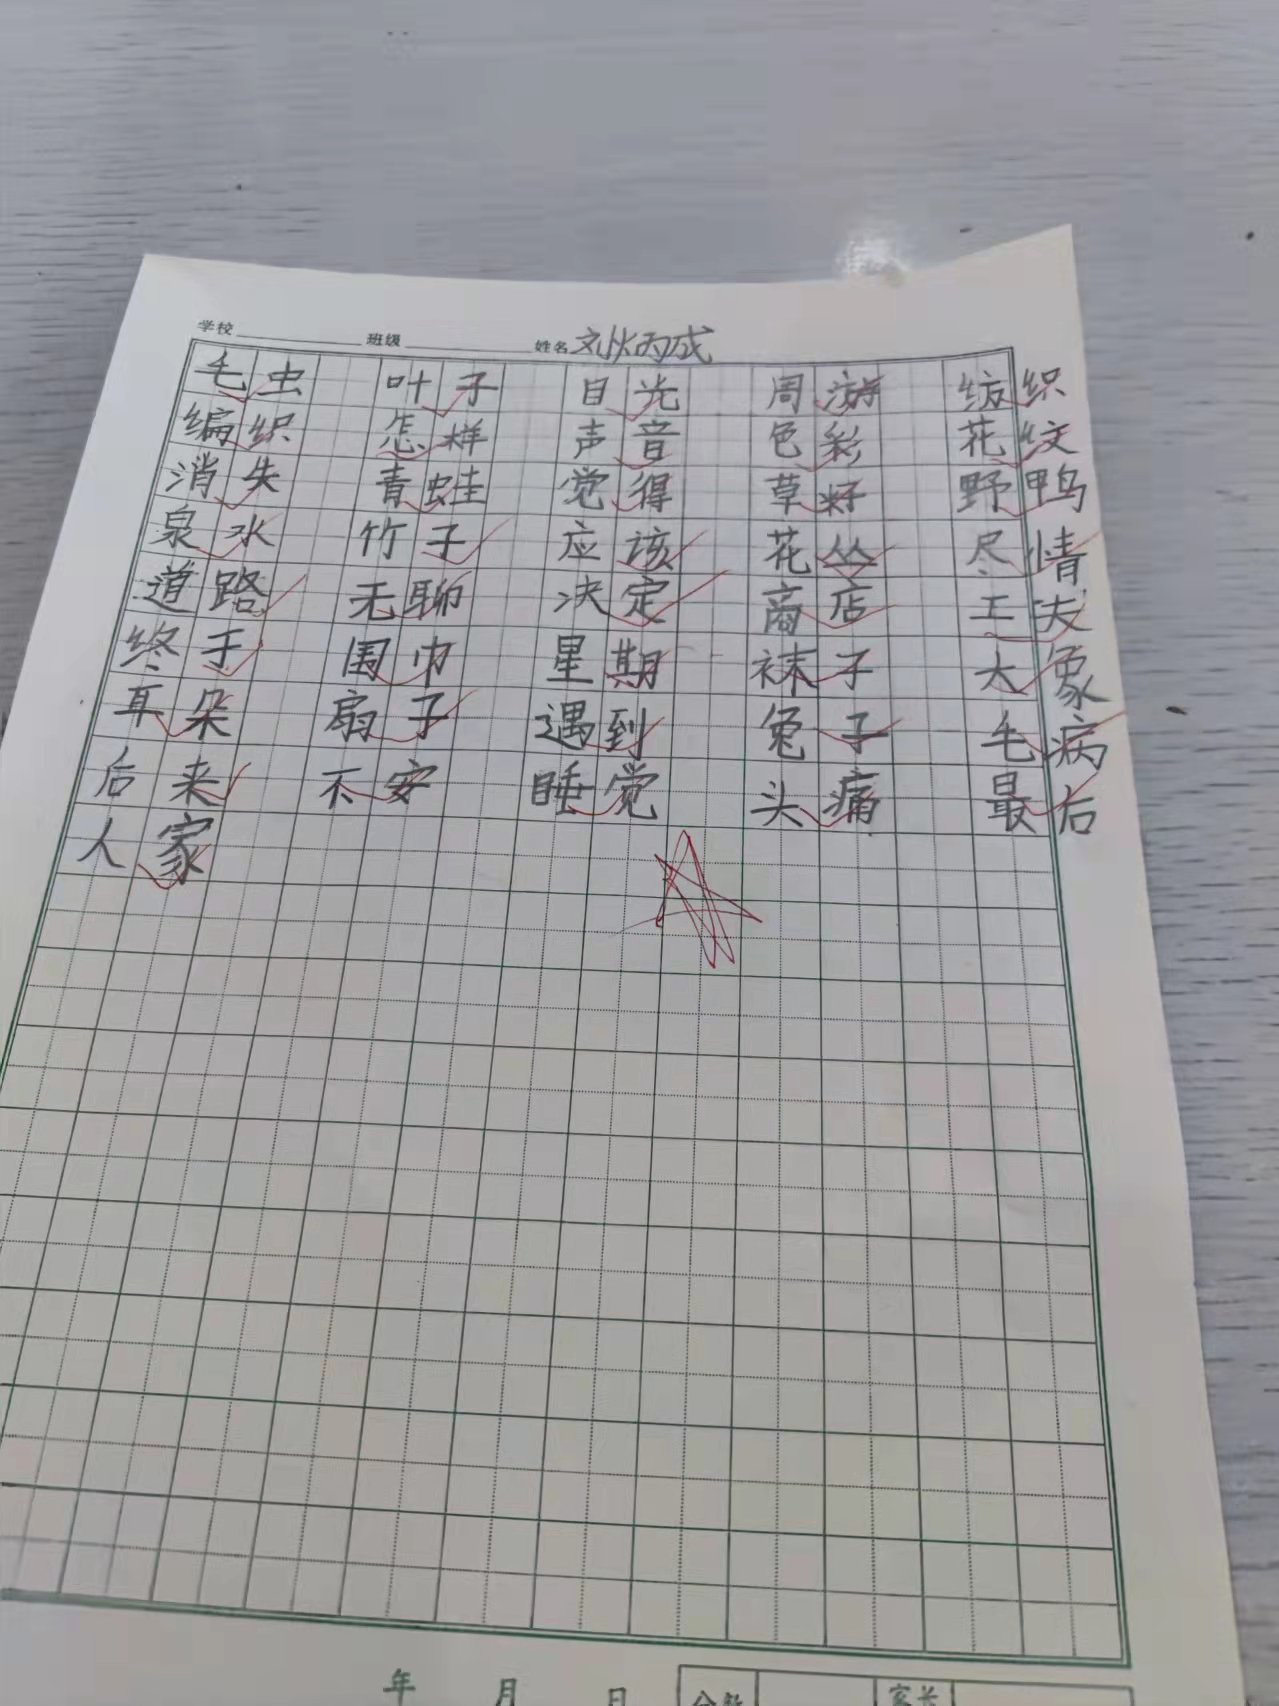 学校 班级 姓名
毛虫 叶子 目光 周游 纺织
编织 怎样 声音 色彩 花纹
消失 青蛙 觉得 草籽 野鸭
泉水 竹子 应该 花丛 尽情
道路 无聊 决定 商店 工夫
终于 围巾 星期 袜子 大象
耳朵 扇子 遇到 兔子 毛病
后来 不安 睡觉 头痛 最后
人家
年 月 日 分数 家长